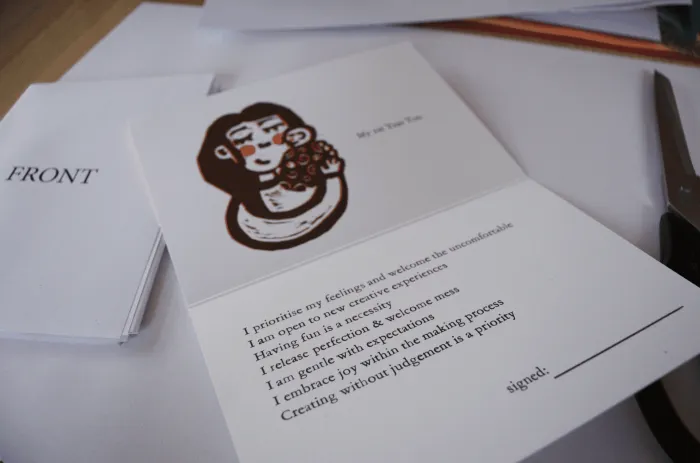 FRONT
My rat Tsao Tsao
I prioritise my feelings and welcome the uncomfortable
I am open to new creative experiences
Having fun is a necessity
I release perfection & welcome mess
I am gentle with expectations
I embrace joy within the making process
Creating without judgement is a priority
signed: